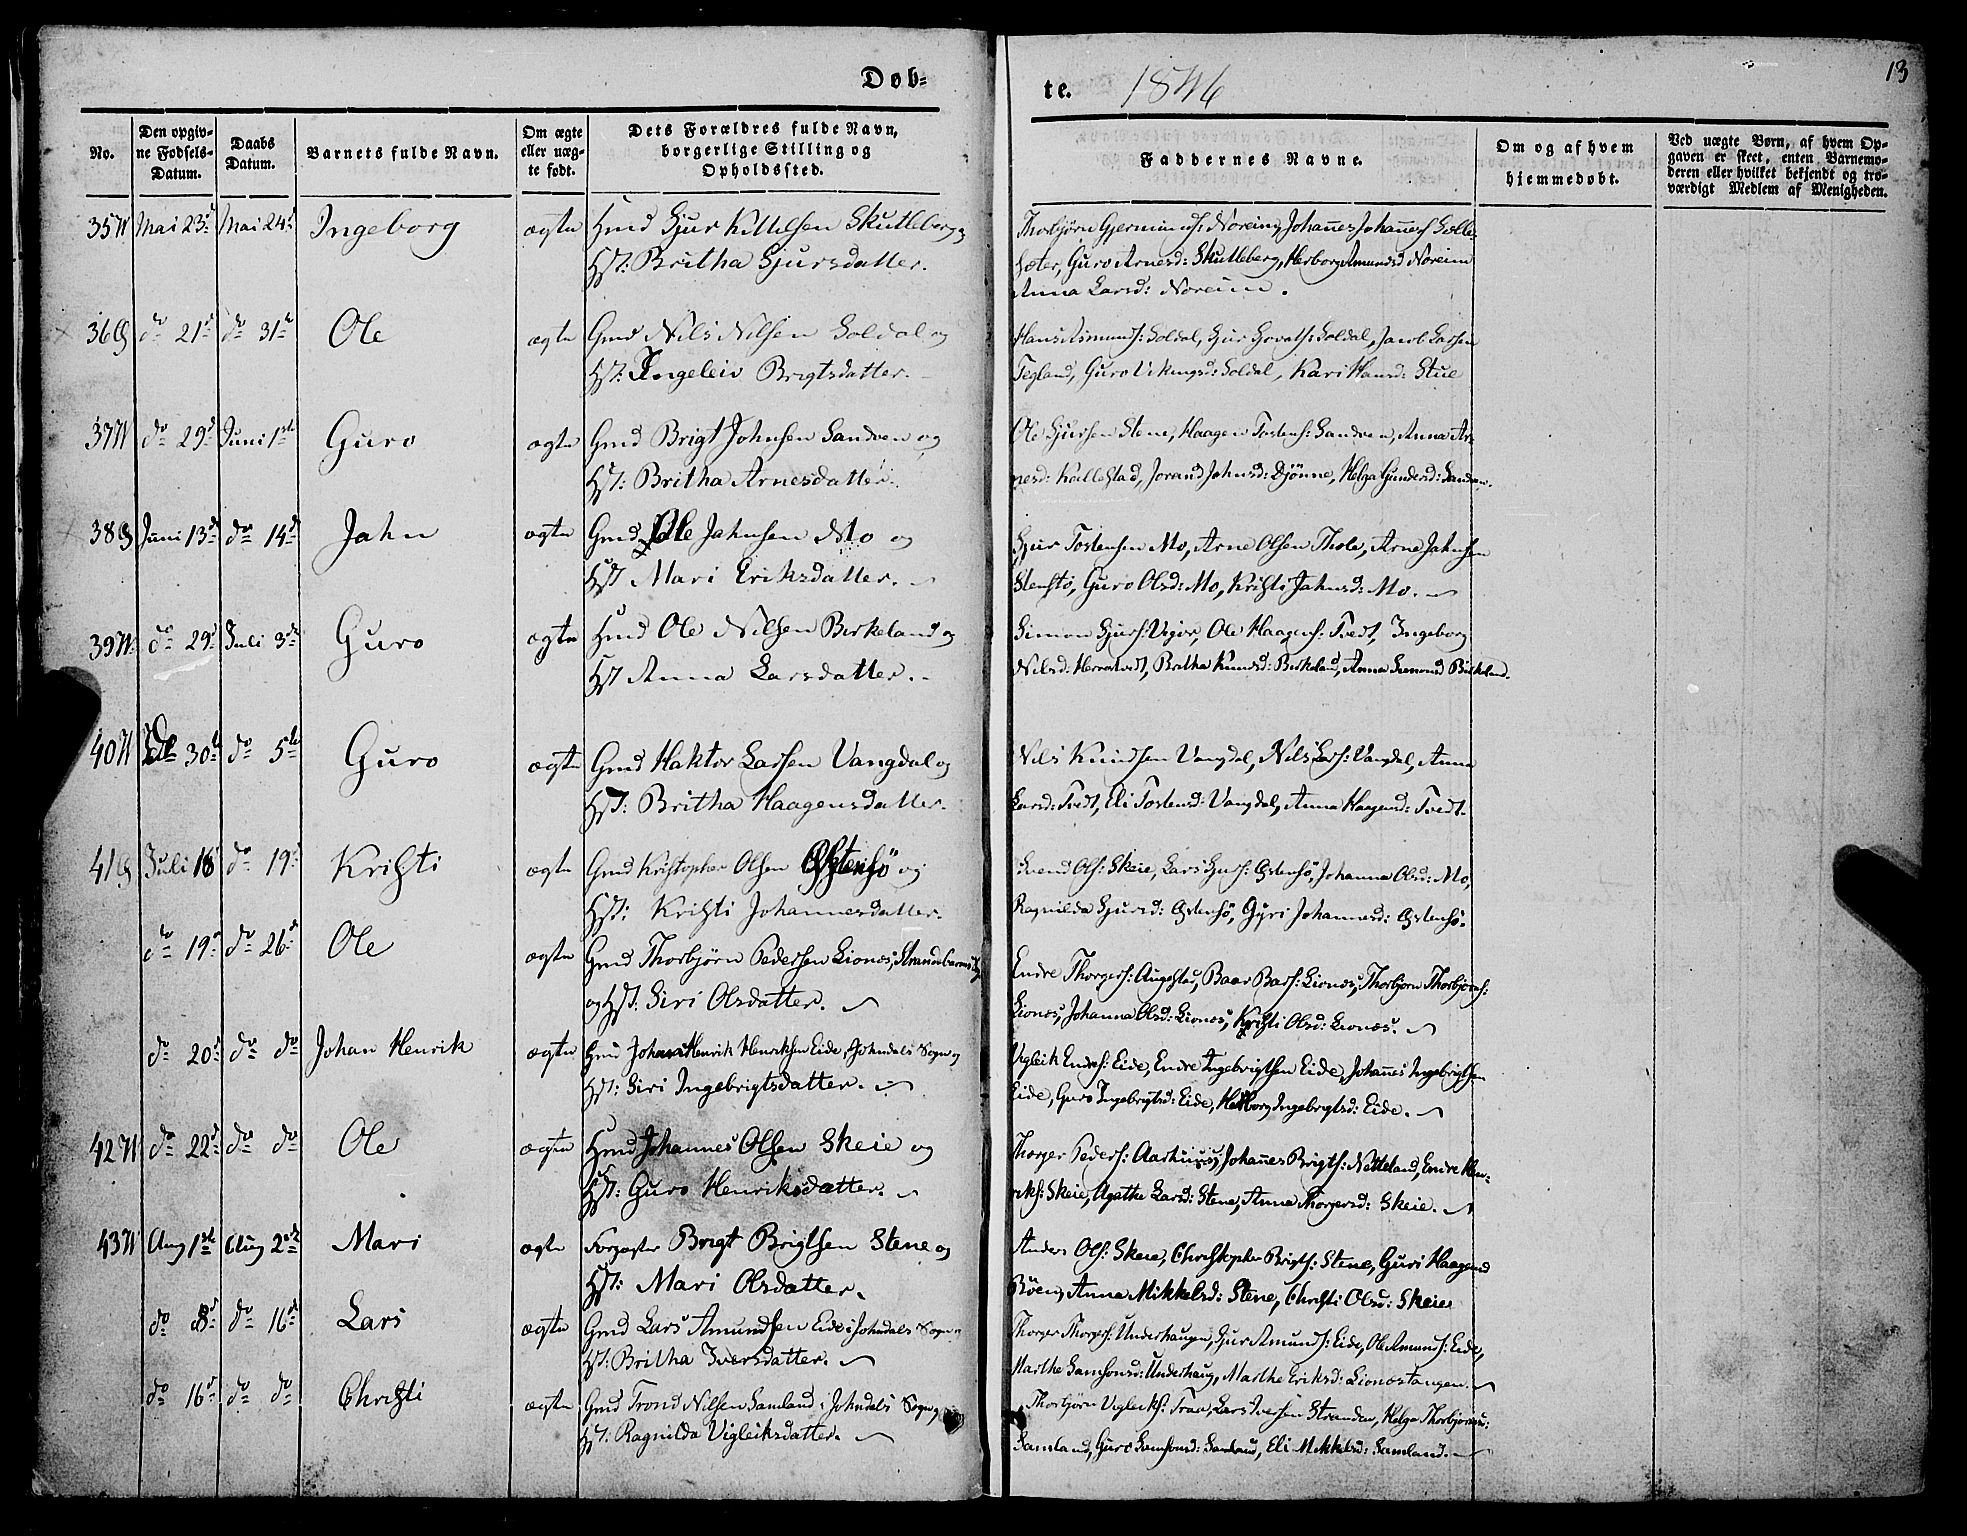 Døb-
te. 1846
13
No.
Den opgiv-
ne Fødsels-
Datum.
Daabs
Datum.
Barnets fulde Navn.
Om ægte
eller uæg-
te født.
Dets Forældres fulde Navn,
borgerlige Stilling og
Opholdssted.
Faddernes Navne.
Om og af hvem
hjemmedøbt.
Ved uægte Børn, af hvem Op-
gaven er skeet, enten Barnemo-
deren eller hvilket bekjendt og tro-
værdigt Medlem af Menigheden.
35 Mai 23d Mai 24d Ingeborg ægte Sjur Kittelsen Skutleberg
Hst: Britha Sjursdatter.
Johannes
Guro Arnesd: Skutleberg, Herborg Amundsd Noreim
Anna Larsd: Noreim.
36 do 21d do 31te Ole ægte Gmd Nils Nilsen Soldal og
Hst: Ingeleiv Brigtsdatter.
Hans Asmunds: Soldal, Sjur Soldal, Jacob Larsen
Tegland, Guro Vikingsd: Soldal, Kari Hansd: Stue
37 do 29d Juni 1ste Guro ægte Gmd Brigt Johnsen Sandven og
Hst: Britha Arnesdatter.
Ole Sjursen Stene, Haagen Tostens: Sandven, Anna Ar-
nesd: Kallestad, Jorand Johnsd: Djönne, Helga Gundersd: Sandven.
38 Juni 13d do 14d Jahn ægte Gmd Ole Jahnsen Mo og
Hst Mari Eriksdatter.
Sjur Tostensen Mo, Arne Olsen Thole, Arne Jahnsen
Stenstø, Guro Olsd: Mo, Kristi Jahnsd: Mo.
39 do 29d Juli 3die Guro ægte Hmd Ole Nilsen Birkeland og
Hst Anna Larsdatter.
Simon Sjurs: Ole Haagens: Tvedt, Ingeborg
Nilsd: Britha Knudsd: Birkeland, Anna Birkeland.
40 do 30te do 5te Guro ægte Gmd Haktor Larsen Vangdal og
Hst: Britha Haagensdatter.
Nils Knudsen Vangdal, Nils Lars: Vangdal, Anna
Larsd: Tvedt, Eli Tostensd: Vangdal, Anna Haagensd: Tvedt.
41 Juli 18 do 19d Kristi ægte Gmd Kristopher Olsen Østensö og
Hst: Kristi Johannesdatter.
Svend Ols: Skeie, Lars Sjurs: Østensö, Johanna Olsd: Mo,
Ragnilda Sjursd: Østensö, Gyri Johannesd: Østensö.
do 19d do 26d Ole ægte Gmd Thorbjörn Pedersen Lionæs, Strandebarms
og Hst: Siri Olsdatter.
Endre Thorgers: Augestad, Baar Bars: Lionæs, Thorbjörn Thorbjörns:
Lionæs, Johanna Olsd: Lionæs, Kristi Olsd: Lionæs.
do 20d do do Johan Henrik ægte Gmd Johan Henrik Henriksen Eide i Johndals Sogn og
Hst: Siri Ingebrigtsdatter.
Vigleik Endres: Eide, Endre Ingebrigtsen Eide, Johannes Ingebrigtsen
Eide, Guro Ingebrigtsd: Eide, Herborg Ingebrigtsd: Eide.
42 do 22d do do Ole ægte Hmd Johannes Olsen Skeie og
Hst: Guro Henriksdatter.
Thorger Peders: Aarhuus, Johannes Brigts: Netteland, Endre Hen-
riks: Skeie, Agathe Larsd: Stene, Anna Thorgersd: Skeie.
43 Aug 1ste Aug 2den Mari ægte Forpagter Brigt Brigtsen Stene og
Hst: Mari Olsdatter.
Anders Ols: Skeie, Christopher Brigts: Stene, Guri Haagensd
Röen, Anna Mikkelsd: Stene, Christi Olsd: Skeie
do 8d do 16d Lars ægte Gmd Lars Amundsen Eide i Johndals Sogn
Hst: Britha Iversdatter.
Thorger Thorgers: Underhaugen, Sjur Amunds: Eide, Ole Amunds: Eide,
Marthe Samsonsd: Underhaug, Marthe Eriksd: Lionæstangen.
do 16d do do Christi ægte Gmd Trond Nilsen Samland i Johndals Sogn
Hst: Ragnilda Vigleiksdatter.
Thorbjörn Vigleiks: Traa, Lars Iversen Stranden, Helga Thorbjörnsd:
Samland, Guro Samsonsd: Samland, Eli Mikkelsd: Samland.